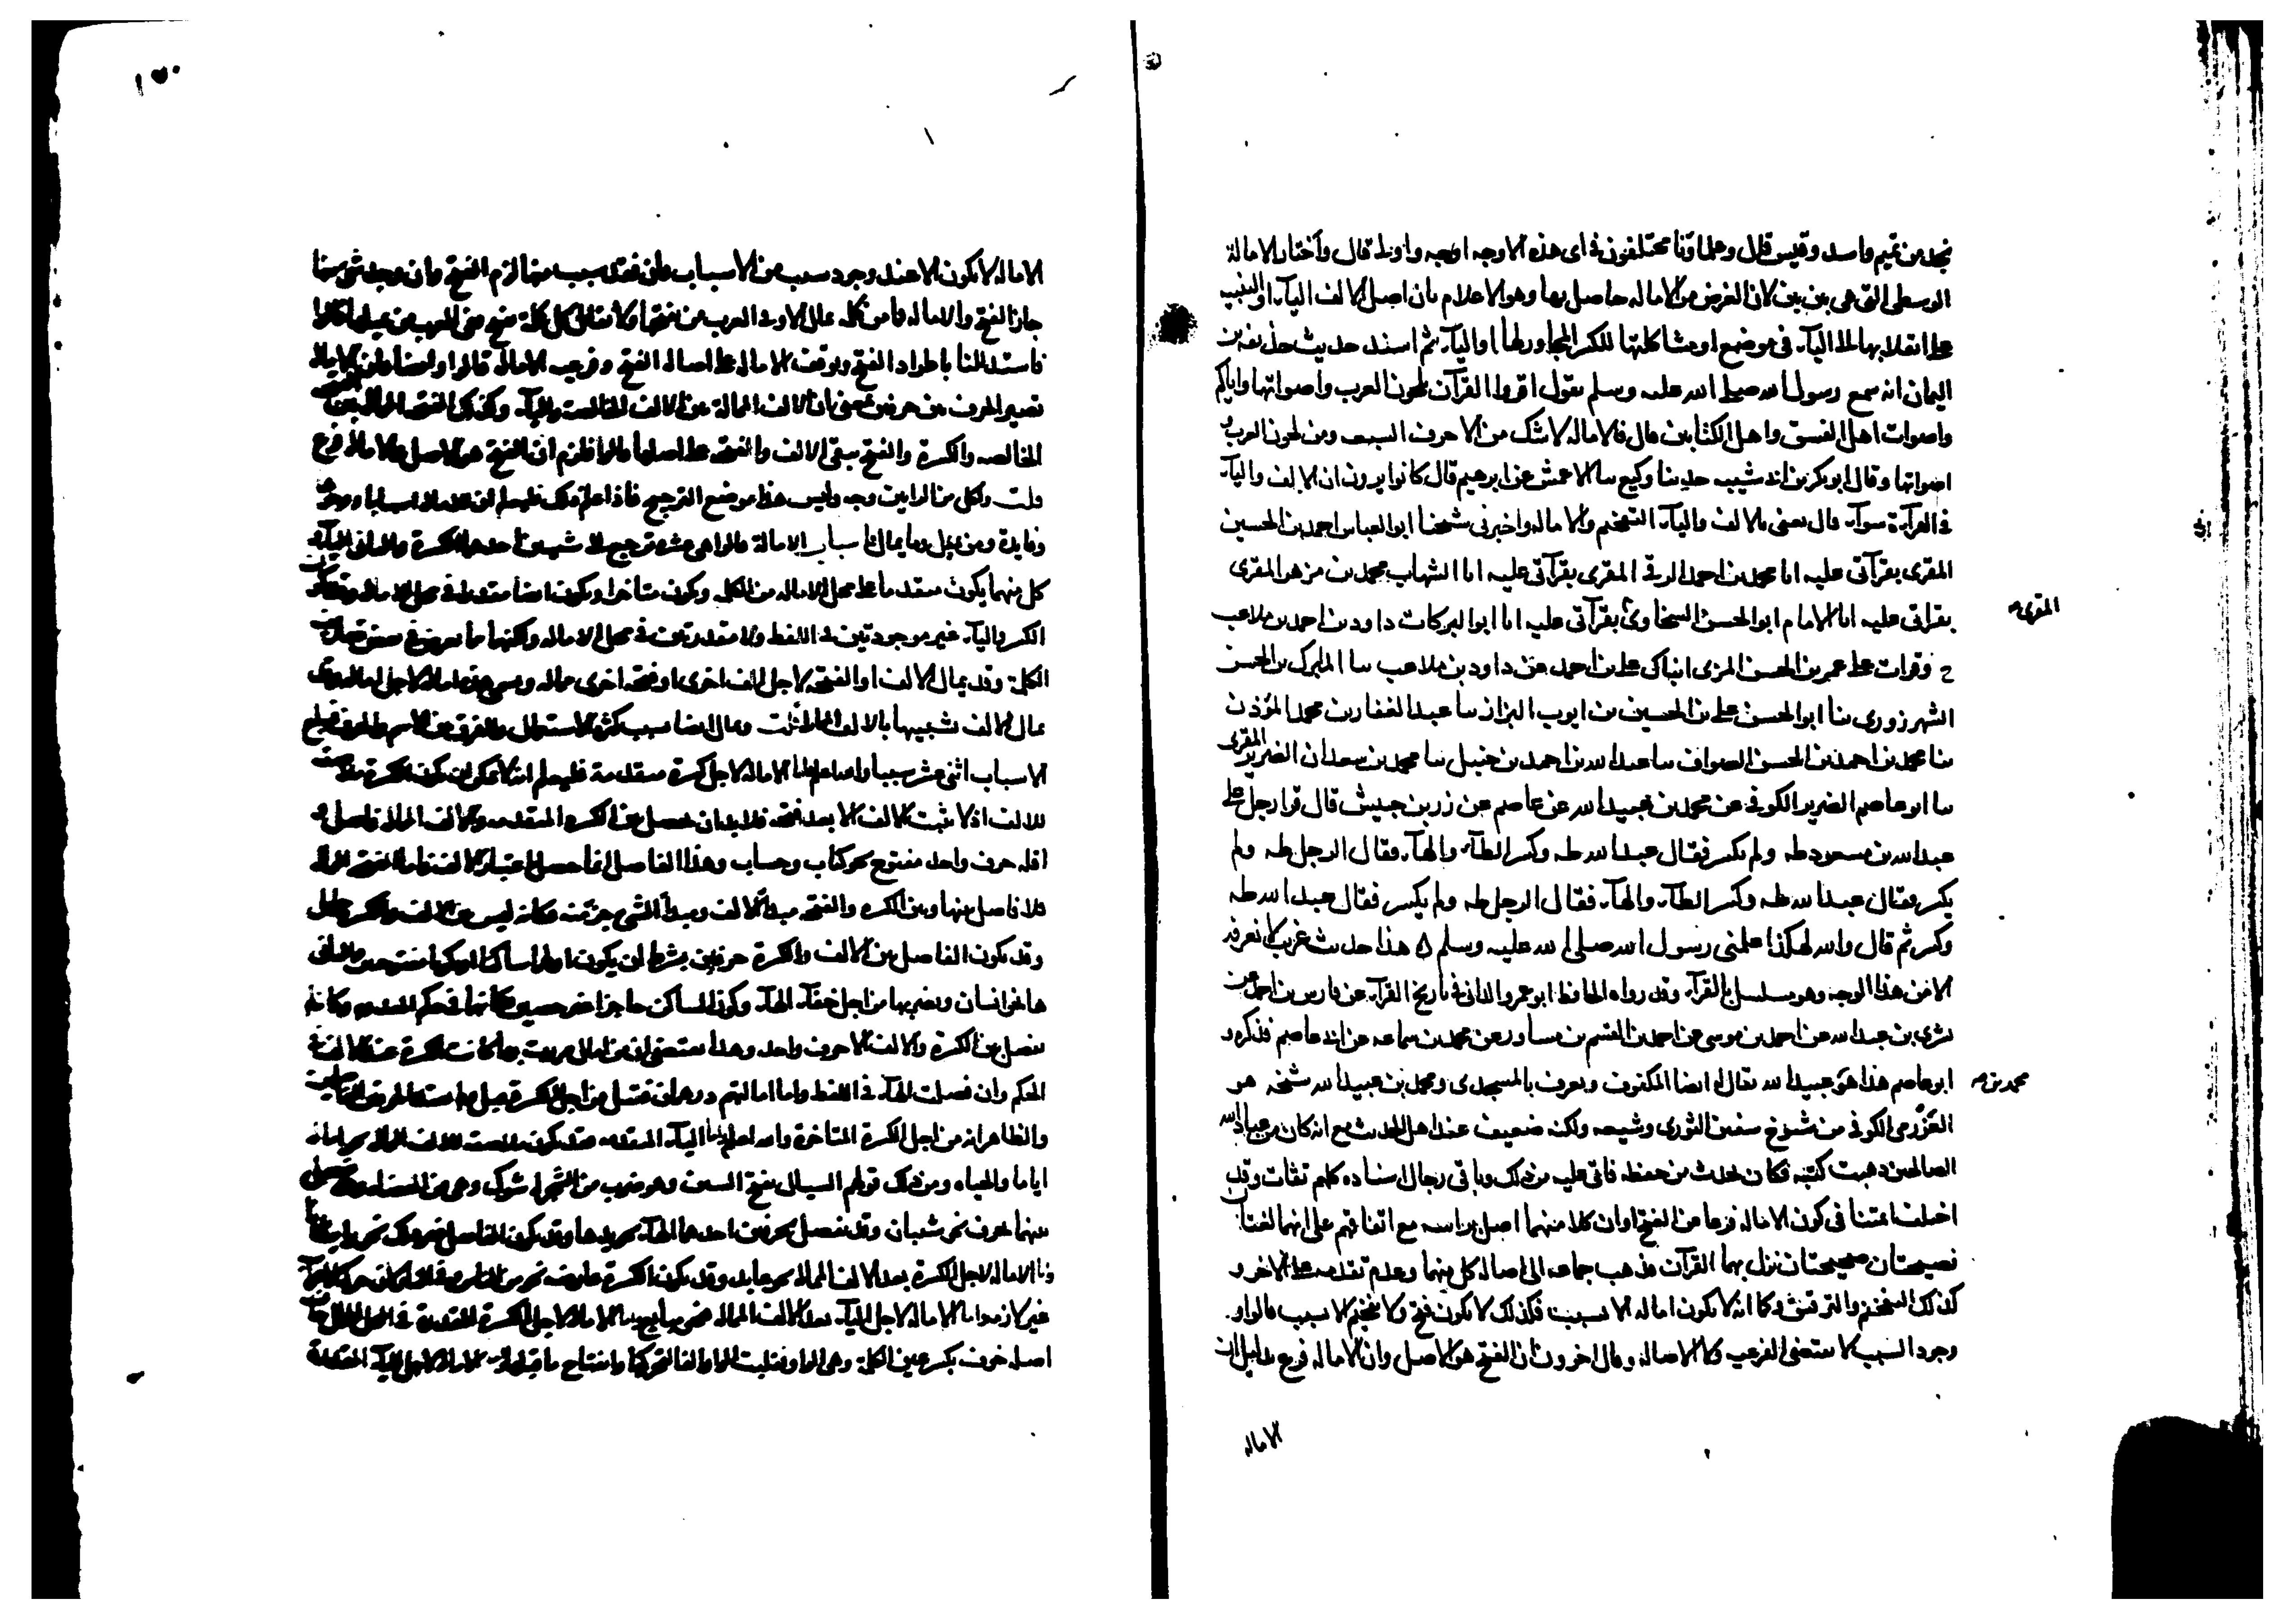 نجد من تميم واسد وقيس قال وعلماؤنا مختلفون في اى هذه الاوجه اوجه واولى قال واختار الامالة
الوسطى التي هي بين بين لان الغرض من الامالة حاصل بها وهو الاعلام بان اصل الالف اليآء او التنبيه
على انقلابها الى اليآء في موضع او مشاكلتها للكسر المجاور لها او اليآء ثم اسند حديث حذيفة بن
اليمان انه سمع رسول الله صلى الله عليه وسلم يقول اقروا القرآن بلحون العرب واصواتها واياكم
واصوات اهل الفسق واهل الكتابين قال فالاماله لا شك من الاحرف السبعه ومن لحون العرب و
اصواتها وقال ابو بكر بن ابى شيبه حدثنا وكيع سا الاعمش عن ابرهيم قال كانوا يرون ان الالف واليآء
في القرآءة سوآء قال يعنى بالالف واليآء التفخيم والاماله واخبرني شيخنا ابو العباس احمد بن الحسين
المقرى بقرآتى عليه انا محمد بن احمد الرقى المقرى بقرآتى عليه انا الشهاب محمد بن مزهر المقرى
بقراتى عليه انا الامام ابو الحسن السخاوى بقرآتى عليه انا ابو البركات داود بن احمد بن ملاعب
المقرى
ح وقرات على عمر بن الحسن المزى انباك على بن احمد عن داود بن ملاعب سا المبارك بن الحسن
الشهرزورى سا ابو الحسن على بن الحسين بن ايوب البزاز سا عبد الغفار بن محمد المؤذن
سا محمد بن احمد بن الحسن الصواف سا عبد الله بن احمد بن حنبل سا محمد بن سعدان الضرير المقرى
سا ابو عاصم الضرير الكوفى عن محمد بن عبيد الله عن عاصم عن زر بن حبيش قال قرا رجل على
عبد الله بن مسعود طه ولم يكسر فقال عبد الله طه وكسر الطآء والهآء فقال الرجل طه ولم
يكسر فقال عبد الله طه وكسر الطآء والهآء فقال الرجل طه ولم يكسر فقال عبد الله طه
وكسر ثم قال والله لهكذا علمنى رسول الله صلى الله عليه وسلم ه هذا حديث غريب لا نعرفه
الا من هذا الوجه وهو مسلسل بالقرآء وقد رواه الحافظ ابو عمرو الدانى في تاريخ القرآء عن فارس بن احمد عن
بشرى بن عبد الله عن احمد بن موسى عن احمد بن القسم بن مساور عن محمد بن سماعه عن ابى عاصم فذكره و
ابو عاصم هذا هو عبيد الله يقال له ايضا المكفوف ويعرف بالمسجدى ومحمد بن عبيد الله شيخه هو
محمد بن
العَرْزَمى الكوفى من شيوخ سفين الثورى وشعبه ولكنه ضعيف عند اهل الحديث مع انه كان من عباد الله
الصالحين ذهبت كتبه فكان يحدث من حفظه فاتى عليه من ذلك وباقى رجال اسناده كلهم ثقات وقد
اختلف ائمتنا في كون الاماله فرعا عن الفتح او ان كلا منهما اصل براسه مع اتفاقهم على انهما لغتان
فصيحتان صحيحتان نزل بهما القرآن فذهب جماعه الى اصالة كل منهما وعدم تقدمه على الاخر و
كذلك التفخيم والترقيق وكما انه لا يكون اماله الا بسبب فكذلك لا يكون فتح ولا تفخيم الا بسبب قالوا و
وجود السبب لا يقتضى الفرعيه ولا الاصاله وقال اخرون ان الفتح هو الاصل وان الاماله فرع بدليل ان
الاماله
١٥٠
الاماله لا يكون الا عند وجود سبب من الاسباب فان فقد سبب منها لزم الفتح وان وجد شى منها
جاز الفتح والاماله فما من كلمه تمال الا وفى العرب من يفتحها ولا يقال كل كلمة تفتح ففى العرب من يميلها قالوا
فاستدللنا باطراد الفتح وتوقف الاماله على اصالة الفتح وفرعيه الامالة قالوا وايضا فان الامالة
تصير الحرف بين حرفين بمعنى ان الالف الممالة بين الالف الخالصة واليآء وكذلك الفتحه الممالة بين الفتحة
الخالصه والكسرة والفتح يبقى الالف والفتحه على اصلها قالوا فلزم ان الفتح هو الاصل والامالة فرع
قلت ولكل من الرايين وجه وليس هذا موضع الترجيح فاذا علم ذلك فليعلم ان للامالة اسبابا ووجوها
وفايدة ومن يميل وما يمال فاسباب الامالة قالوا هى عشره ترجع الى شيئين احدهما الكسرة والثانى اليآء و
كل منهما يكون متقدما على محل الاماله من الكلمه ويكون متاخرا ويكون ايضا مقدرا في محل الاماله وقد يكون
الكسر واليآء غير موجودتين في اللفظ ولا مقدرتين في محل الاماله ولكنهما مما يعرض في بعض تصاريف
الكلمة وقد تمال الالف او الفتحه لاجل الف اخرى او فتحه اخرى مماله ويسمى هذا اماله لاجل اماله وقد
تمال الالف تشبيها بالالف الممالة قلت وتمال ايضا بسبب كثرة الاستعمال وللفرق بين الاسم والحرف فتبلغ
الاسباب اثنى عشر سببا واما الاماله لاجل كسرة متقدمة فليعلم انه لا يمكن ان تكون الكسرة ملاصقة
للالف اذ لا يثبت الالف الا بعد فتحه فلا بد ان يحصل بين الكسرة المتقدمه والالف المماله فاصل و
اقله حرف واحد مفتوح نحو كتاب وحساب وهذا الفاصل انما حصل باعتبار الالف فاما الفتحة المماله
فلا فاصل بينها وبين الكسره والفتحه مبدأ الالف ومبدأ الشى جزء منه فكانه ليس بين الالف والكسرة حايل
وقد يكون الفاصل بين الالف والكسرة حرفين بشرط ان يكون اولهما ساكنا او يكونا مفتوحين والثانى
هآء نحو انسان ويضربها من اجل خفآء الهآء وكون الساكن حاجزا غير حصين فكانهما في حكم المعدوم وكانه لم
يفصل بين الكسرة والالف الا حرف واحد وهذا يقتضى ان من امال مررت بها كانت الكسرة عنده تلى الالف في
الحكم وان فصلت الهآء في اللفظ واما امالتهم درهمان فقيل من اجل الكسرة قبل ولم يعتد بالحرفين الفاصلين
والظاهر انه من اجل الكسرة المتاخرة واما الاماله لاجل اليآء المتقدمه فقد تكون ملاصقة للالف الممالة نحو امالة
اياما والحياه ومن ذلك قولهم السيال بفتح السين وهو ضرب من الشجر له شوك وهى من العضاه وقد يفصل
بينهما بحرف نحو شيبان وقد يفصل بحرفين احدهما الهآء نحو يدها وقد يكون الفاصل غير ذلك نحو رايت يدنا
واما الاماله لاجل الكسرة بعد الالف الممالة نحو عابد وقد تكون الكسرة عارضه نحو من الناس وفى النار لان حركة الاعراب
غير لازمة واما الاماله لاجل اليآء بعد الالف المماله فنحو مبايع واما الاماله لاجل الكسرة المقدرة في المحل الممال نحو خاف
اصله خوف بكسر عين الكلمة وهى الواو فقلبت الواو الفا لتحركها وانفتاح ما قبلها واما الاماله لاجل اليآء المقدرة